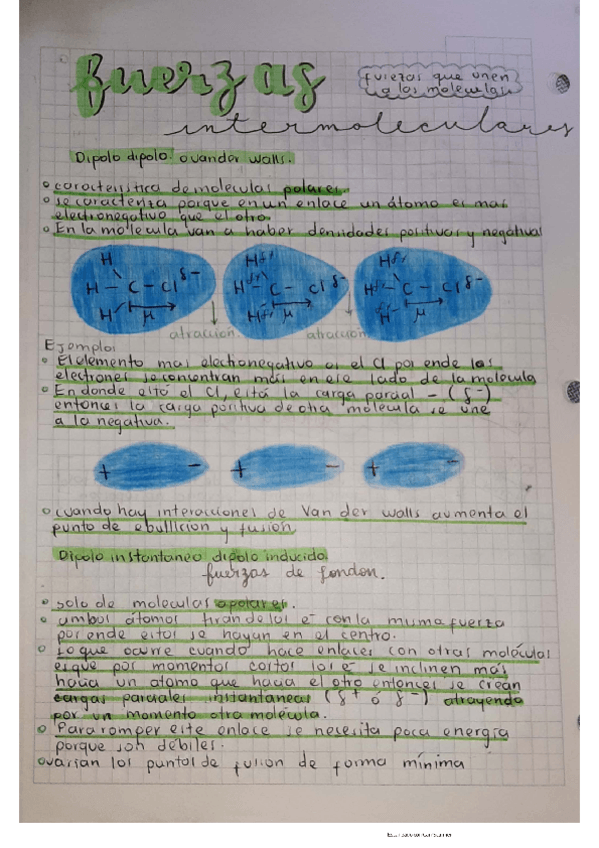 fuerzas
fuerzas que unen
a las moleculas
intermoleculares
Dipolo dipolo: o vander walls.
o caracteristica de moleculas polares.
o se caracteriza porque en un enlace un átomo es mas
electronegativo que el otro.
o En la molecula van a haber densidades positivas y negativas
H
H - C - Cl δ-
H μ
Hδ+
Hδ+ - C - Cl δ-
Hδ+ μ
Hδ+
Hδ+ - C - Cl δ-
Hδ+ μ
atracción.
atracción
Ejemplo:
o El elemento mas electronegativo es el Cl por ende los
electrones se concentran más en ese lado de la molecula
o En donde está el Cl, está la carga parcial - (δ-)
entonces la carga positiva de otra molecula se une
a la negativa.
+ -
+ -
+ -
o cuando hay interacciones de Van der walls aumenta el
punto de ebullicion y fusión
Dipolo instantaneo dipolo inducido
fuerzas de london.
o solo de moleculas apolares.
o ambos átomos tiran de los e- con la misma fuerza
por ende estos se hayan en el centro.
o Lo que ocurre cuando hace enlaces con otras moléculas
es que por momentos cortos los e- se inclinen más
hacia un atomo que hacia el otro entonces se crean
cargas parciales instantaneas (δ+ o δ-) atrayendo
por un momento otra molécula.
o Para romper este enlace se necesita poca energia
porque son débiles.
o varian los puntos de fusion de forma mínima